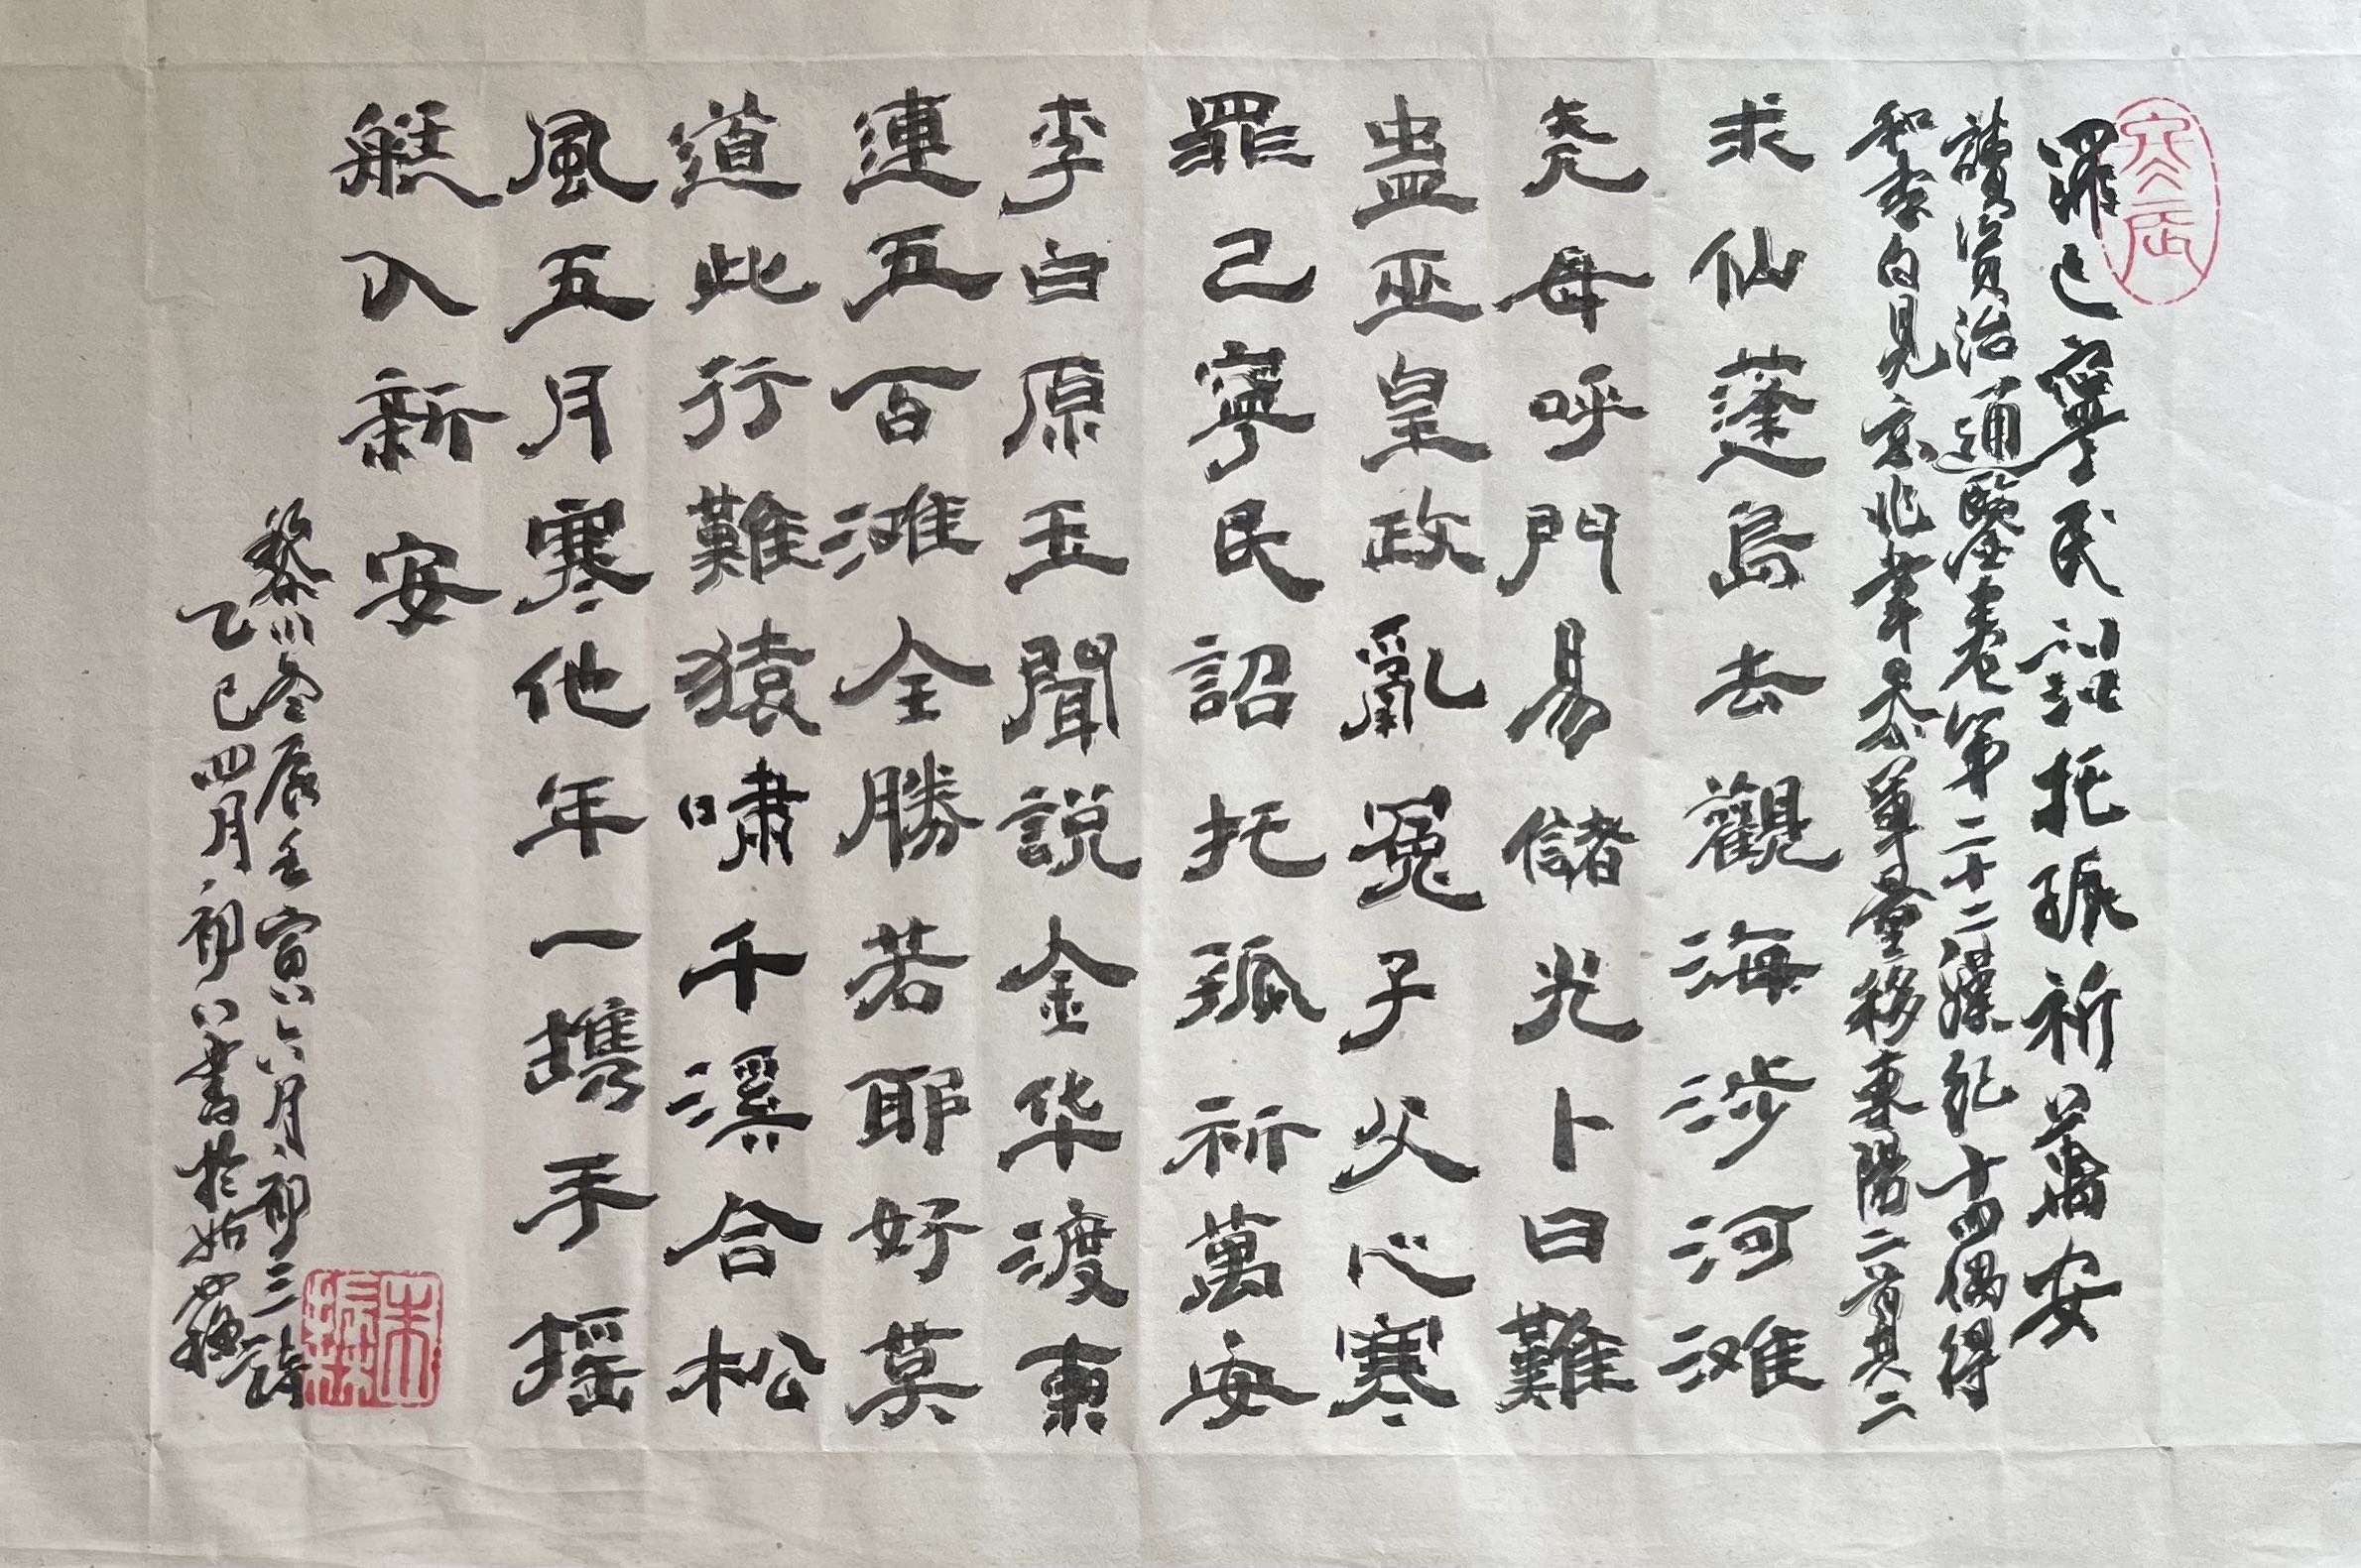 罪己寧民詔托孤祈萬安
讀資治通鑒卷第二十二漢紀十四偶得
和李白見京兆韋參軍量移東陽二首其二
求仙蓬島去觀海涉河滩
堯母呼門易儲光卜曰難
蠱巫皇政亂冤子父心寒
罪己寧民詔托孤祈萬安
李白原玉聞説金华渡東
連五百滩全勝若耶好莫
道此行難猿嘯千溪合松
風五月寒他年一攜手摇
艇入新安
黎川冬辰壬寅六月初三詩
乙巳四月初八書於姑蘇